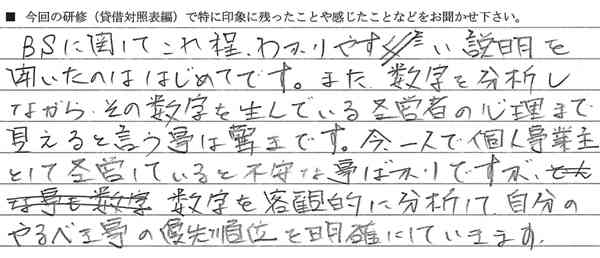 ■ 今回の研修（貸借対照表編）で特に印象に残ったことや感じたことなどをお聞かせ下さい。
BSに関してこれ程、わかりやすい説明を
聞いたのははじめてです。また、数字を分析し
ながら、その数字を生んでいる経営者の心理まで
見えると言う事は驚きです。今、一人で個人事業主
として経営していると不安な事ばかりですが、
数字を客観的に分析して、自分の
やるべき事の優先順位を明確にしていきます。